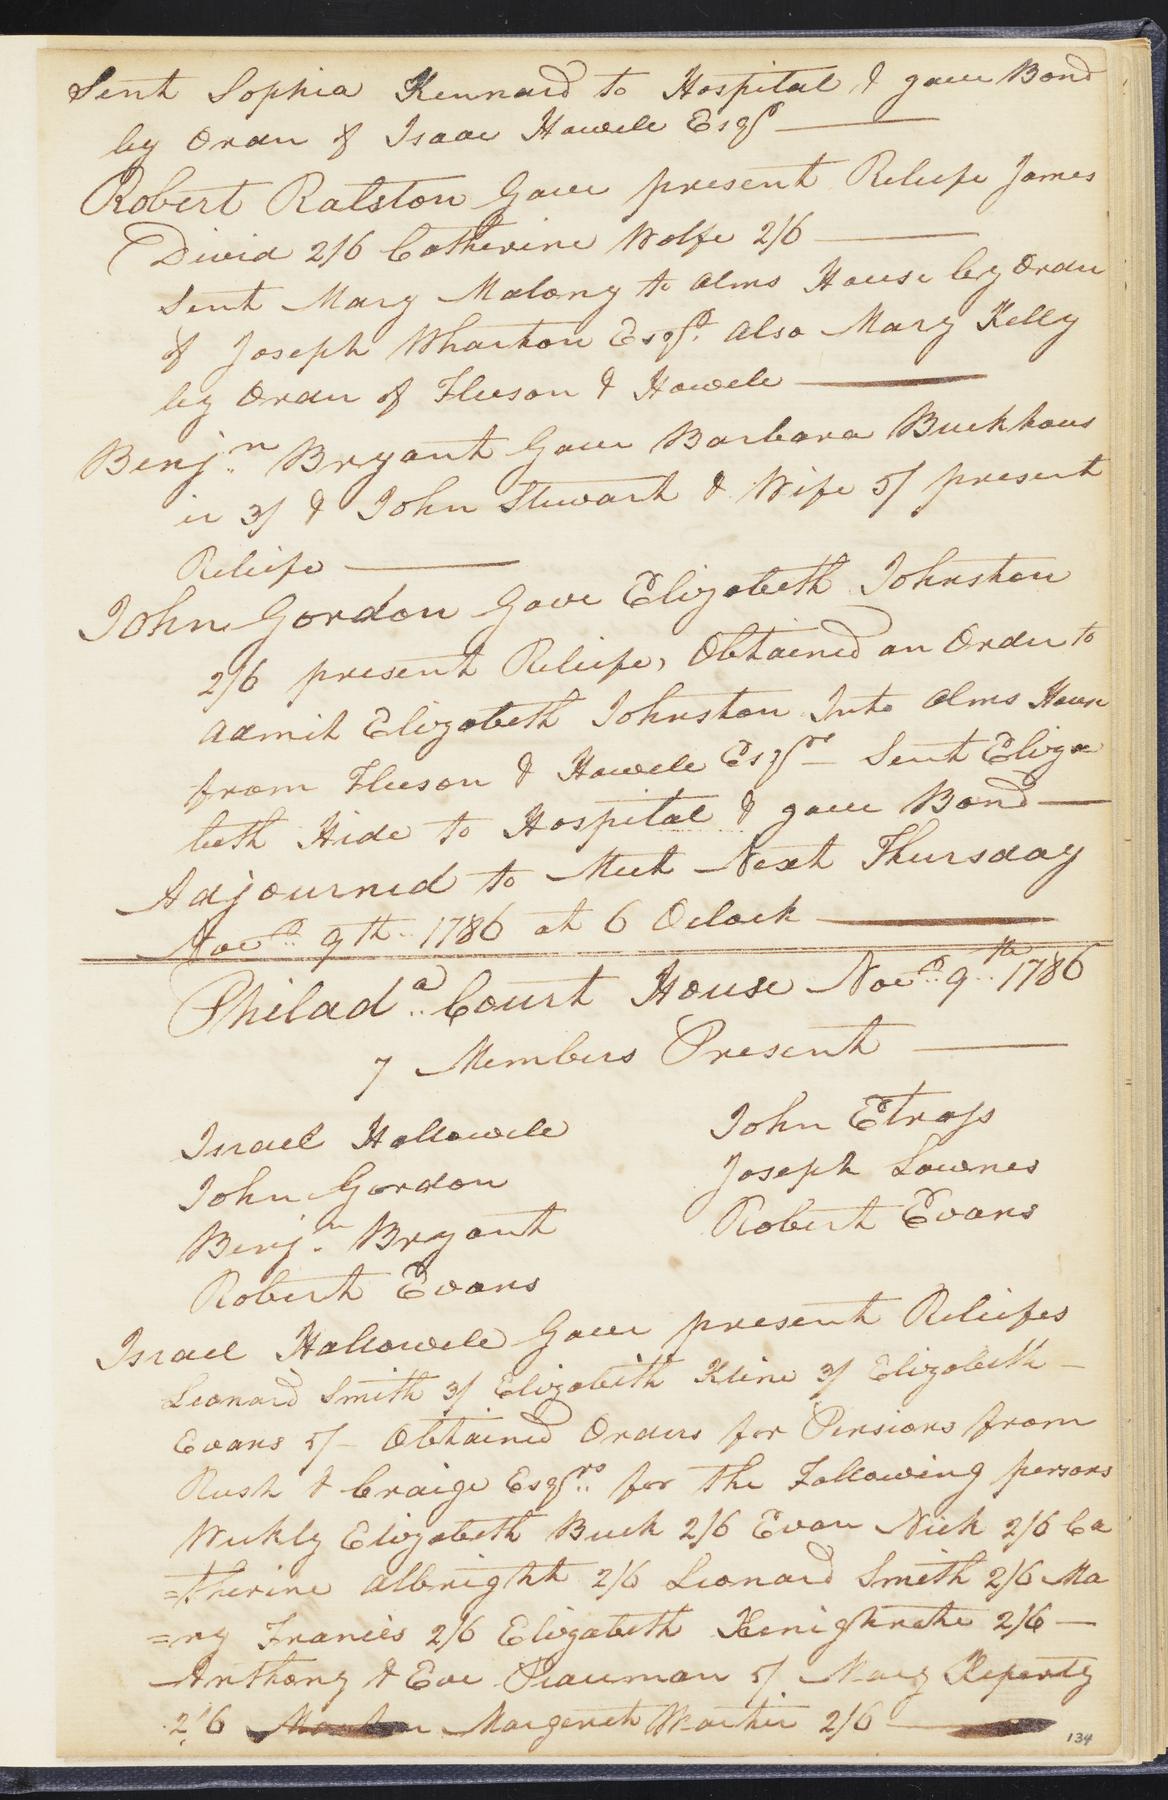 Sent Sophia Kennard to Hospital & gave Bond
by Order of Isaac Howele Esqr
Robert Ralston Gave present Reliefe James
Divid 2/6 Catherine Wolfe 2/6
Sent Mary Malony to Alms House by Order
of Joseph Wharton Esqr. Also Mary Kelly
by Order of Fleeson & Howele
Benjn Bryant Gave Barbara Buckhous
er 3/ & John Stewart & Wife 5/ present
Reliefe
John Gordon Gave Elizabeth Johnston
2/6 present Reliefe, Obtained an Order to
admit Elizabeth Johnston Into Alms House
from Fleeson & Howele Esqrs Sent Eliza
beth Hide to Hospital & gave Bond
Adjourned to Meet Next Thursday
Novr 9th 1786 at 6 Oclock
Philada Court House Novr 9th 1786
7 Members Present
Israel Hallowele John Strass
John Gordon Joseph Lownes
Benjn Bryant Robert Evans
Robert Evans
Israel Hallowele Gave present Reliefes
Leonard Smith 3/ Elizabeth Kline 3/ Elizabeth
Evans 5/ Obtained Orders for Pensions from
Rush & Craige Esqrs for the Following persons
Weekly Elizabeth Buck 2/6 Evan Nick 2/6 Ca
=therine Albright 2/6 Leonard Smith 2/6 Ma
=ry Francies 2/6 Elizabeth 2/6
Anthony & Eve 5/ Mary
2/6 Margereth Martin 2/6
134